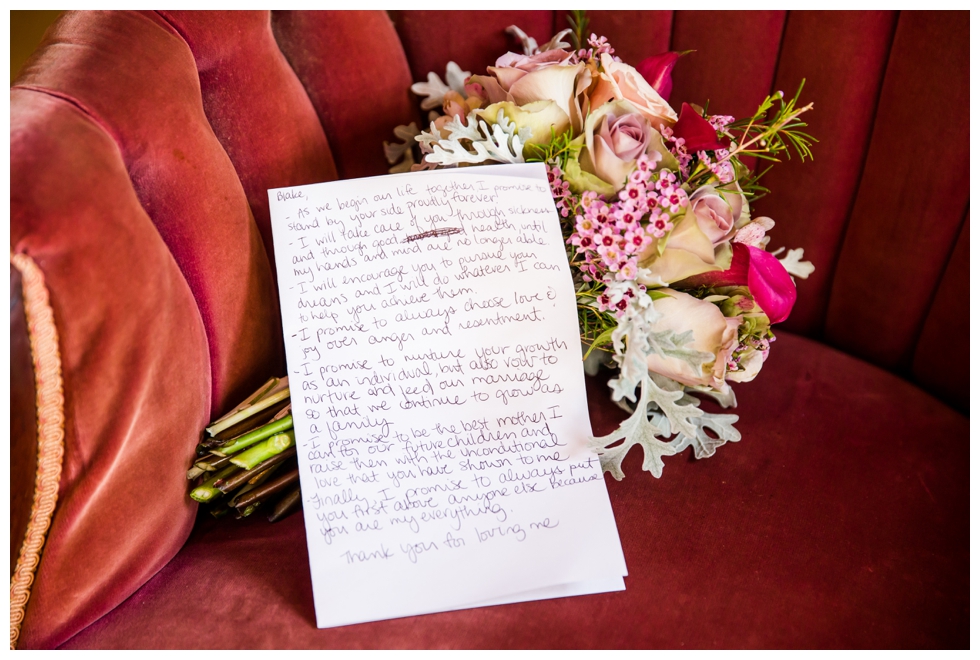 Blake,
- As we begin our life together, I promise to
stand by your side proudly forever.
- I will take care of you through sickness
and through good health until
my hands and mind are no longer able.
- I will encourage you to pursue your
dreams and I will do whatever I can
to help you achieve them.
- I promise to always choose love &
joy over anger and resentment.
- I promise to nurture your growth
as an individual, but also vow to
nurture and feed our marriage
so that we continue to grow as
a family.
- I promise to be the best mother I
can for our future children and
raise them with the unconditional
love that you have shown to me
- Finally, I promise to always put
you first above anyone else because
you are my everything.
Thank you for loving me